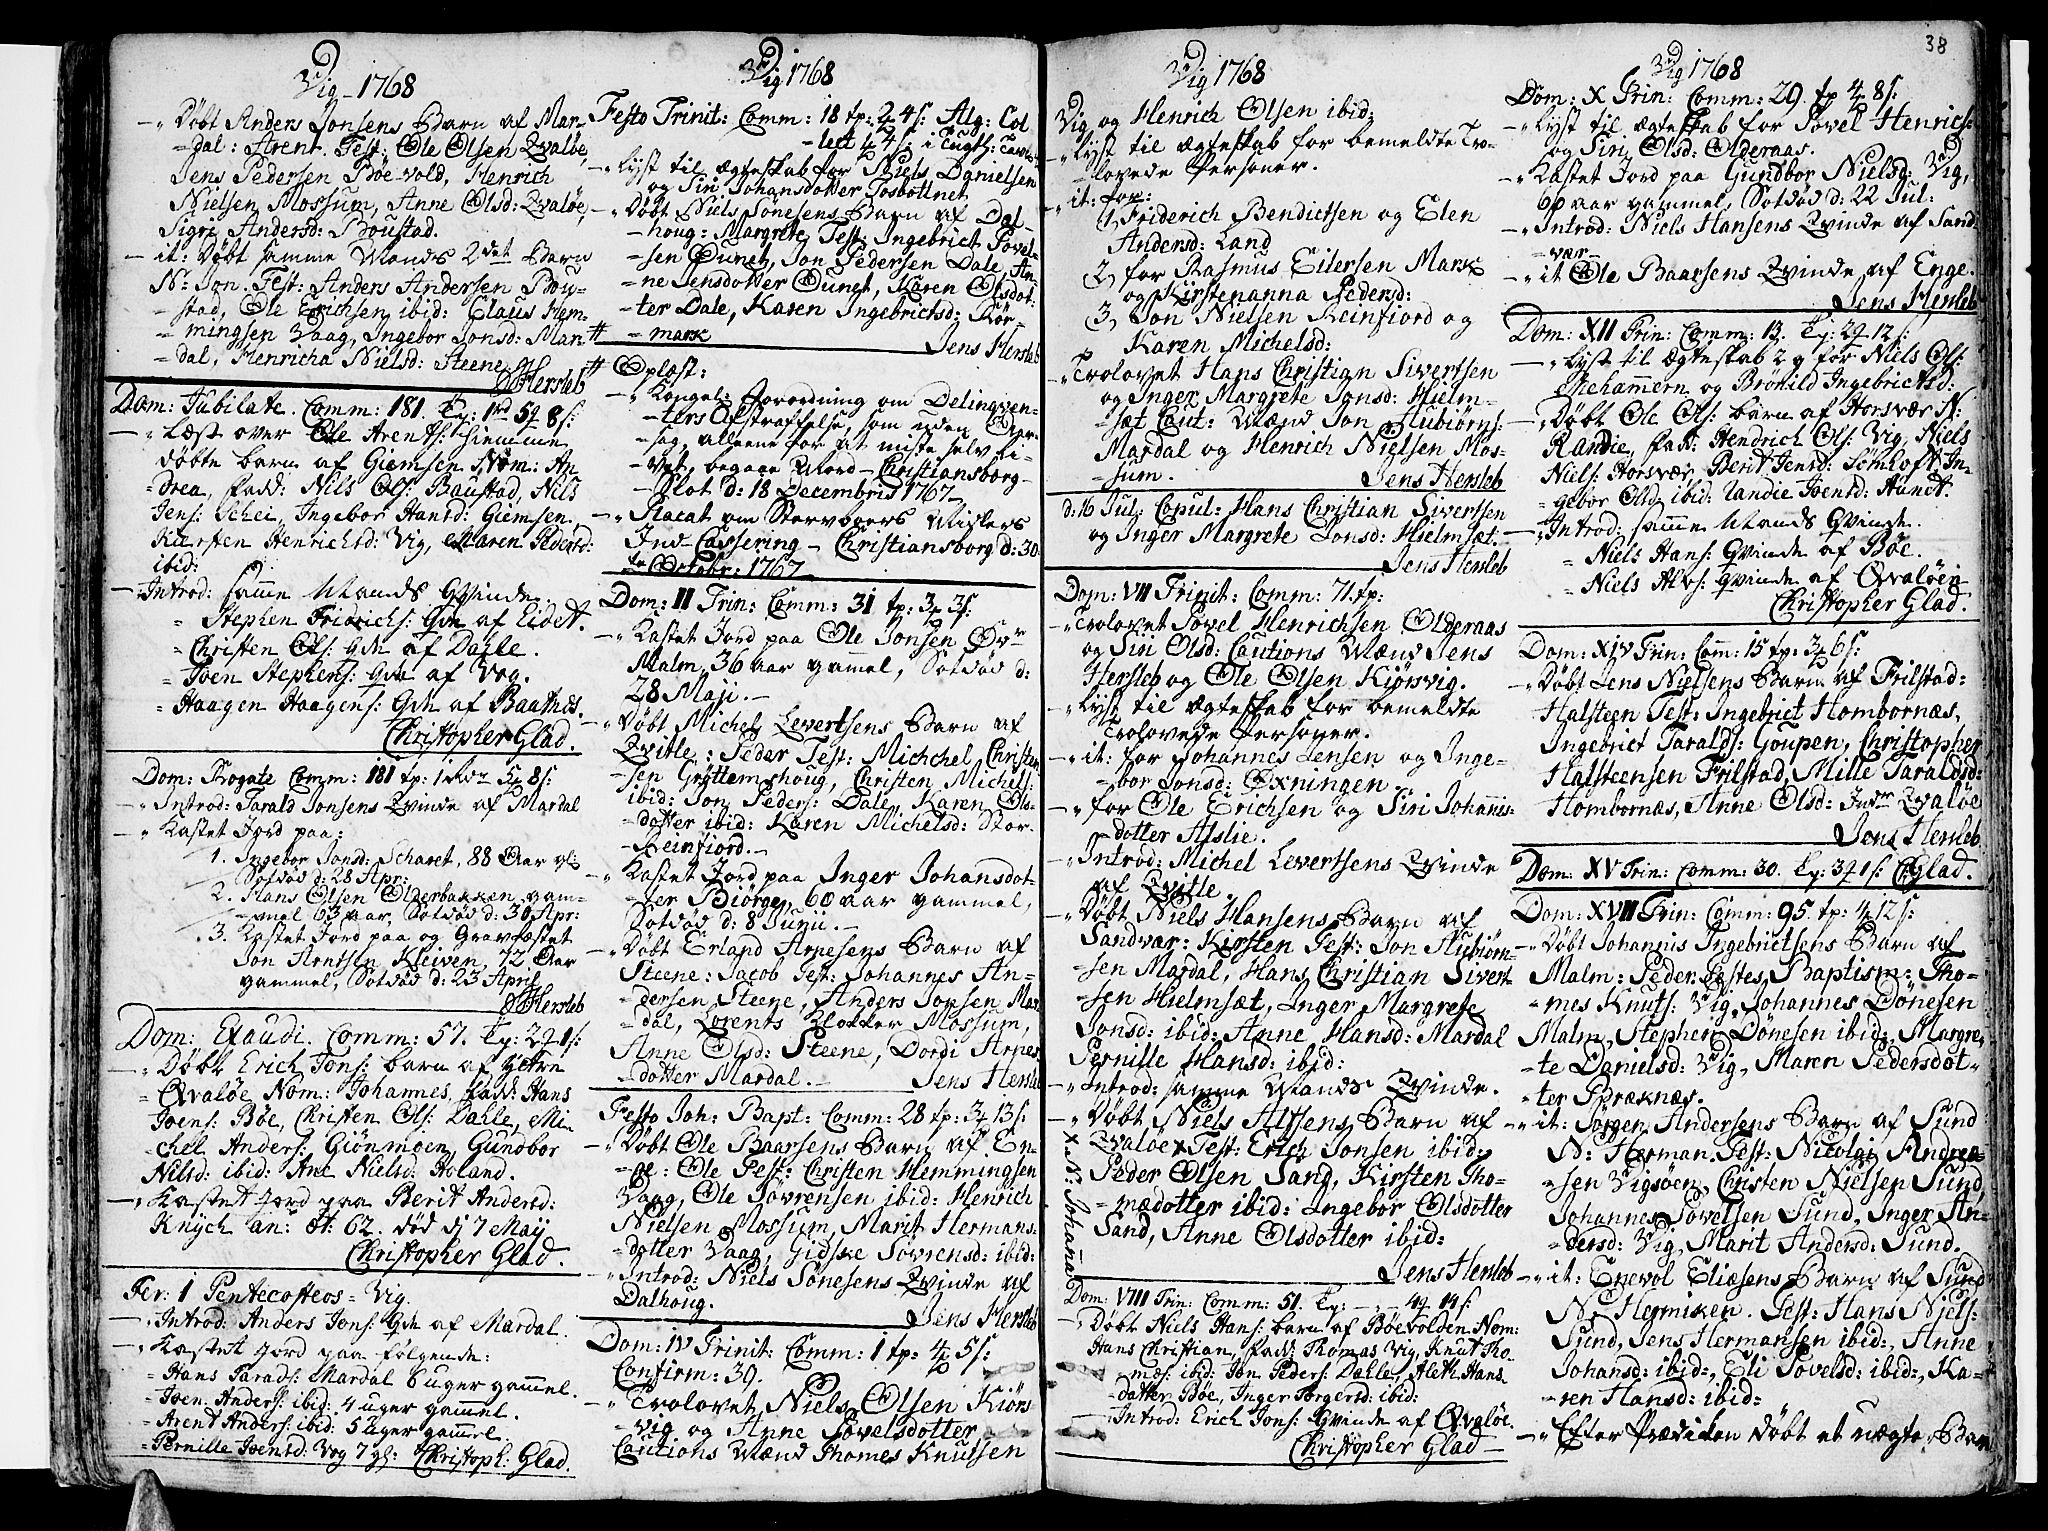 Vig 1768
Døbt Anders Jonsens Barn af Mar-
=dal: Arent. Test: Ole Olsen Qvaløe,
Jens Pedersen Böe-vold, Henrich
Nielsen Mossum, Anne Olsd: Qvaløe,
Sigri Andersd: Boustad.
- it: Døbt samme Mands 2det Barn
N: Jon. Test: Anders Andersen Bou-
stad, Ole Erichsen ibid: Claus Hem-
mingsen Vaag, Ingebor Jonsd: Mar-
dal, Henricha Nielsd: Steene
JHersleb
Dom: Jubilate. Comm: 181. Tp: 1rd 5# 8s:
- Læst over Ole Arents: hiemme
døbte barn af Giemsen, Nom: An-
drea, Fadd: Nils Ols: Baustad, Nils
Jens: Schei, Ingebor Hansd: Giemsen,
Kiersten Henrichsd: Vig, Maren Pedersd:
ibid:
- Introd: samme Mands Qvinde.
= Stephen Fridrichs: Qvn af Eidet.
= Christen Ols: Qvn af Dahle.
= Joen Stephens: Qvn af Vog.
= Haagen Haagens: Qvn af Baathds.
Christopher Glad.
Dom: Rogate Comm: 181 tp: 1 rdr 5# 8s:
- Introd: Tarald Jonsens Qvinde af Mardal
- Kastet Jord paa:
1. Ingebor Jonsd: Scharet, 88 Aar gl:
Sotdød d: 28 Apr:
2. Hans Olsen Olderbakken, gam-
mel 63 aar, Sotdød d: 30 Apr:
3. Kastet Jord paa og Gravfæstet
Jon Arntsen Kleiven, 72 Aar
gammel, Sotdød d: 23 April
JHersleb
Dom: Exaudi. Comm: 57. Tp: 2# 1s:
- Døbt Erich Jons: barn af Ytre
Qvaløe, Nom: Johannes, Fadd: Hans
Joens: Bøe, Christen Ols: Dahle, Mi-
chel Anders: Giönmoen, Gundbor
Nilsd: ibid: Ane Nielsd: Holand.
- Kastet Jord paa Berit Andersd:
Knÿch an: æt: 62. død dj 7 Maÿ
Christopher Glad.
Fer: 1 Pentecosteos = Vig.
- Introd: Anders Jons: Qvn af Mardal.
- Kastet Jord paa følgende:
= Hans Tarads: Mardal 6 uger gammel.
= Joen Anders: ibid: 4 uger gammel.
= Arent Anders: ibid: 5 uger gammel.
= Pernille Joensd: Vog 7 gl: Christoph: Glad.
Vig 1768
Festo Trinit: Comm: 18 tp: 2# 4s: Alg: Col
=lect 4# 4s: i Tugth: Tavle
- Lyst til ægteskab for Niels Danielsen
og Siri Johansdotter Tosbottnet
- Døbt Niels Sönesens Barn af Dal-
houg: Margrete, Test: Ingebrict Povel-
sen Qunet, Jon Pedersen Dale, An-
ne Jensdotter Qunet, Karen Olsdot:
ter Dale, Karen Ingebrictsd: Rör-
mark
Jens Hersleb
Oplæst:
- Kongel: Forordning om Delinqven-
ters Afstraffelse, som uden Aar-
sag, alleene for at miste selv Li-
vet, begaae Mord - Christiansborg-
Slot d: 18 Decembris 1767
- Placat om Stervboers Midlers
Ind-Cassering - Christiansborg d: 30
te Octobr: 1767
Dom: II Trin: Comm: 31 tp: 3# 3s:
- Kastet Jord paa Ole Jonsen Övr
Malm, 36 aar gamel, Sotdød d:
28 Maji.-
- Døbt Michel Levertsens Barn af
Qvitle: Peder Test: Michchel Christen-
sen Gröttemshoug, Christen Michels:
ibid: Jon Peders: Dale, Karen Ols-
dotter ibid: Karen Michelsd: Stor-
Reinfiord.-
- Kastet Jord paa Inger Johansdot-
ter Biörge, 60 aar gammel,
Sotdød d: 8 Junii.-
- Døbt Erland Arnesens Barn af
Steene: Jacob Test: Johannes An-
dersen Steene, Anders Jonsen Mar-
dal, Lorents Blokker Mossum,
Anne Olsd: Steene, Dordi Arnes
dotter Mardal.-
Jens Hersleb
Festo Joh: Bapt: Comm: 28 tp: 3# 13s:
- Døbt Ole Baarsens Barn af En-
ge: Ole Test: Christen Hemmingsen
Vaag, Ole Sövrensen ibid: Henrich
Nielsen Mossum, Marit Hermans-
dotter Vaag, Gidske Sövrensd: ibid:
- Introd: Niels Sönesens Qvinde af
Dalhoug.
Jens Hersleb
Dom: IV Trinit: Comm: 1 tp: 4# 5s:
Confirm: 39.
- Trolovet, Niels Olsen Kiörs
vig og Anne Povelsdotter
Cautions Mænd Thomes Knutsen
Vig 1768
Vig og Henrich Olsen ibid:
- Lyst til ægteskab for bemeldte Tro-
lovede Personer.
- it: for:
1, Friderich Bendictsen og Elen
Andersd: Land
2, for Rasmus Eilersen Marx
og Kirstenanna Pedersd:
3, Jon Nielsen Reinfiord og
Karen Michelsd:
- Trolovet Hans Christian Sivertsen
og Inger Margrete Jonsd: Hielm-
sæt Caut: Mænd Jon Aubiörns:
Mardal og Henrich Nielsen Mos-
sum.
Jens Hersleb
d: 16 Jul: Copul: Hans Christian Sivertsen
og Inger Margrete Jonsd: Hielmsæt.
Jens Hersleb
Dom: VII Trinit: Comm: 71. tp:
- Trolovet Povel Henrichsen Olderaas
og Siri Olsd: Cautions Mænd Jens
Hersleb og Ole Olsen Kiörsvig.
- Lyst til Ægteskab for bemeldte
Trolovede Personer.
- it: for Johannes Jensen og Inge-
bor Jonsd: Öxningen.
- for Ole Erichsen og Siri Johannis-
dotter Aslie.
- Introd: Michel Levertsens Qvinde
af Qvitle.
- Døbt Niels Hansens Barn af
Sandvær: Kirsten Test: Jon Aubiørn-
sen Mardal, Hans Christian Sivert-
sen Hielmsæt, Inger Margrete
Jonsd: ibid: Anne Hansd: Mardal
Pernille Hansd: ibid:
- Introd: samme Mands Qvinde.
- Døbt Niels Altsens Barn af
Qvaløe x Test: Erich Jonsen ibid:
Peder Olsen Sand, Kirsten Tho-
mædotter ibid: Ingebor Olsdotter
Sand, Anne Olsdotter ibid:
x N: Johanna
Jens Hersleb
Dom: VIII Trin: Comm: 51. Tp: 4# 14s:
- Døbt Niels Hans: barn af Böevolden. Nom:
Hans Christian, Fadd: Thomas Vig, Knut Tho-
mæs: ibid: Jon Peders: Dahle, Aleth Hans
datter Bøe, Inger Torgersd: ibid:
- Introd: Erich Jons: Qvinde af Qvaløe.
Christopher Glad
38
Vig 1768
Dom: X Trin: Comm: 29. tp 4# 8s:
- Lyst til ægteskab for Povel Henrics:
og Siri Olsd: Olderaas.
- Kastet Jord paa Gundbor Nielsd: Vig,
60 aar gammel, Sotdød d: 22 Jul:
- Introd: Niels Hansens Qvinde af Sand-
vær-
- it Ole Baarsens Qvinde af Enge.
Jens Hersleb
Dom: XII Trin: Comm: 13. Tp: 2# 12s:
- Lyst til Ægteskab 2 g for Niels Ols:
Ihehammern og Brönild Ingebrictsd:
- Døbt Ole Ols: barn af Horsvær N:
Randie, Fadd: Hendrich Ols: Vig, Niels
Niels: Horsvær, Berit Jensd: Sömhoft, In-
gebor Olsd: ibid: Randie Joensd: Hundt.
- Introd: samme Mands Qvinde.
= Niels Hans: Qvinde af Bøe.
= Niels Alts: Qvinde af Qvaløen
Christopher Glad.
Dom: XIV Trin: Com: 15 tp: 3# 6s:
- Døbt Jens Nielsens Barn af Frilstad:
Halsteen Test: Ingebrict Hombornæs,
Ingebrict Taralds: Goupen, Christopher
Halsteensen Frilstad, Mille Taraldsd:
Hombornæs, Anne Olsd: Indre Qvaløe
Jens Hersleb
Dom: XV Trin: Comm: 30. Tp: 3# 1s: C:Glad.
Dom: XVII Trin: Comm: 95. tp: 4# 12s:
- Døbt Johannis Ingebrictsens Barn af
Malm: Peder. Testes Baptism: Tho-
mes Knuts: Vig, Johannes Dönesen
Malm, Stephen Dönesen ibid:, Margre-
te Danielsd: Vig, Maren Pedersdot-
ter Præknæs.
- it: Jörgen Andersens Barn af Sund
N: Herman. Test: Nicolai Andrea-
sen Vigsöen, Christen Nielsen Sund,
Johannes Povelsen Sund, Inger An-
dersd: Vig, Marit Andersd: Sund.
- it: Enevol Eliæsens Barn af Sund
N: Hemiken. Test: Hans Niels:
Sund, Jens Hermansen ibid:, Anne
Johansd: ibid:, Eli Povelsd: ibid:, Ka-
ren Hansd: ibid:
- Efter Prædiken døbt et uægte Barn